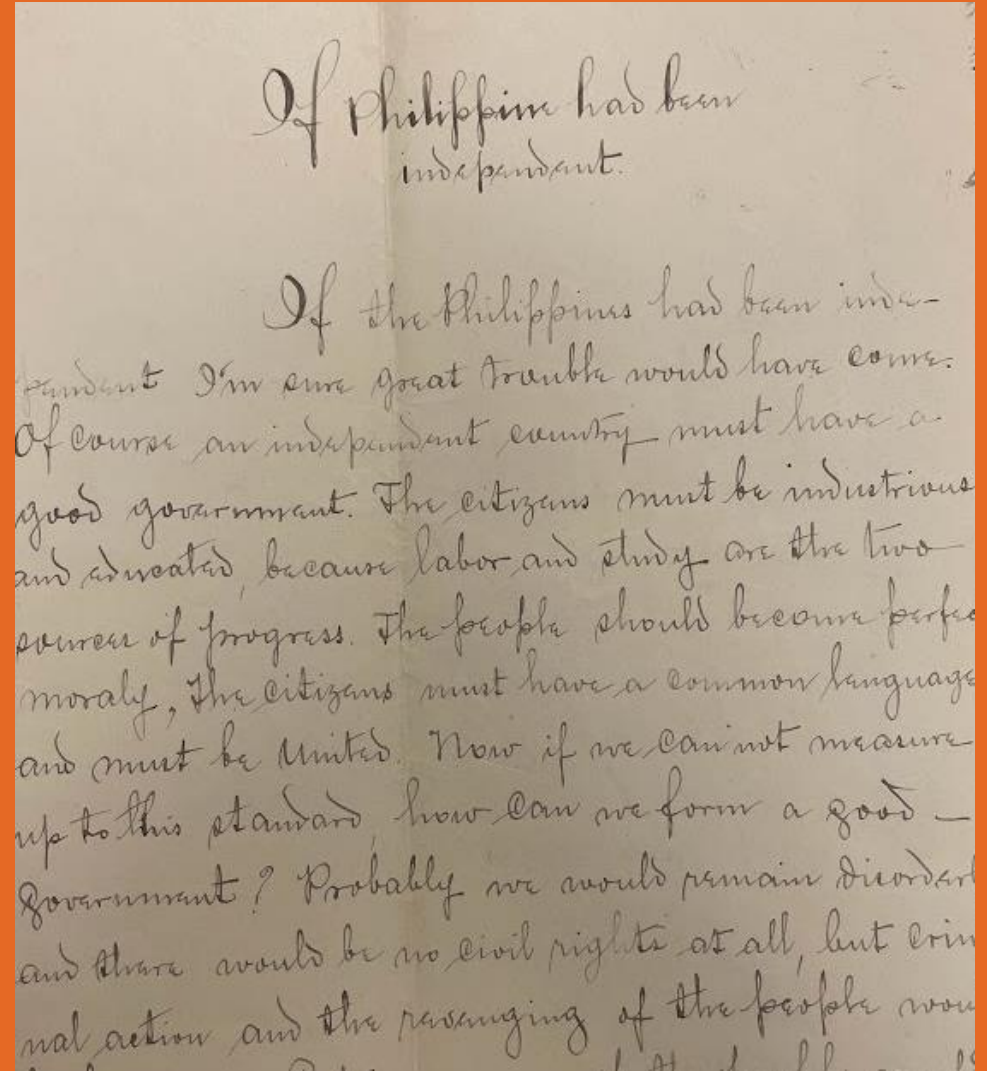 If Philippine had been
independent.
If the Philippines had been inde-
pendent I'm sure great trouble would have come.
Of course an independent country must have a
good government. The citizens must be industrious
and educated, because labor and study are the two
sources of progress. The people should become perfec
moraly, the citizens must have a common language
and must be United. Now if we can not measure
up to this standard, how can we form a good —
government? Probably we would remain disorderl
and there would be no civil rights at all, but crim
nal action and the revenging of the people wou